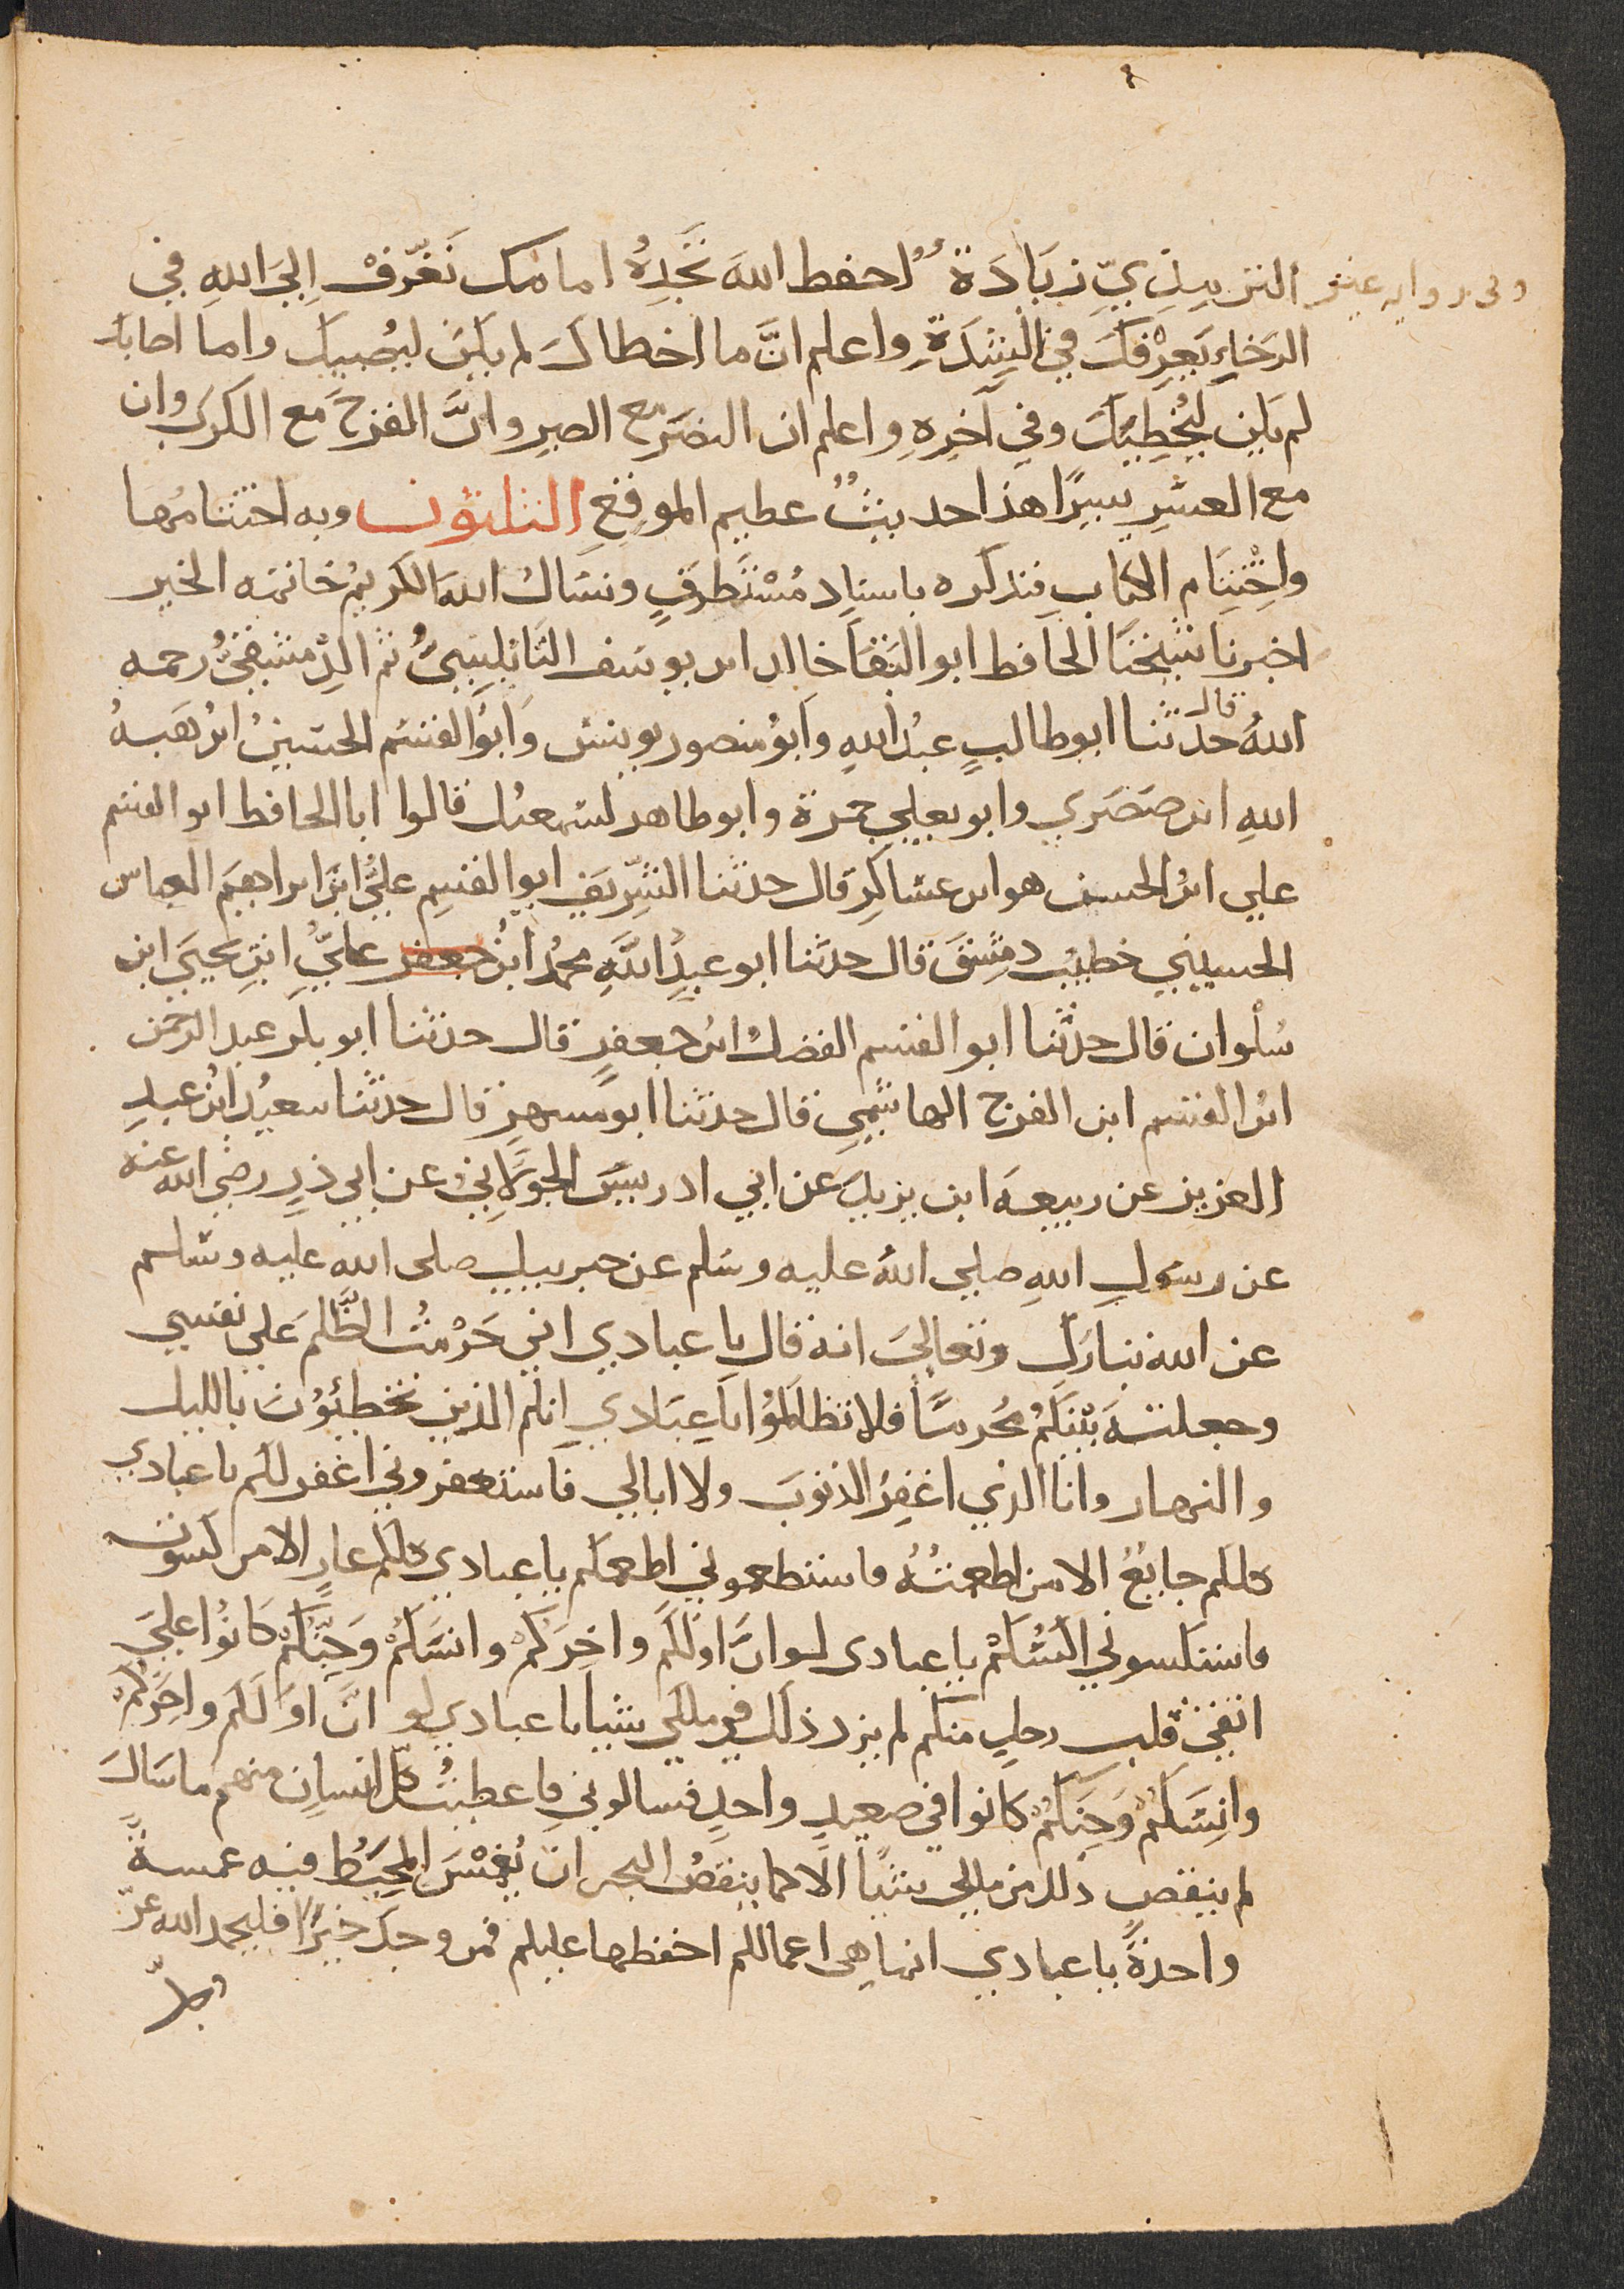 وفى رواية غير الترمِذِيّ زِيَادَةٌ احفظ اللهَ تَجِدْهُ امامك تَعَرَّفْ اِلىَ اللهِ فِي
الرَخاءِ يَعرِفْكَ فِي الشِدَةِ واعلم انَّ ما اخطاكَ لم يكن ليُصيبك واما اصابك
لم يكن لِيُخطِيكَ وفي آخِرِهِ واعلم ان النصَر مع الصبرِ وانَّ الفرَجَ مع الكربِ وان
مع العسرِ يسرًا هذا حديثٌ عظيم الموقعِ الثلاثون وبه اختتامُها
واخْتِتَام الكتابِ فنذكره باسنادٍ مُسْتَطرفٍ ونسَالُ اللهَ الكريمُ خاتمه الخير
اخبرنا شيخنا الحافظ ابو البَقَا خالد ابن يوسف النَابُلسِيّ ثم الدِمشقِيُّ رحمه
اللهُ قال حدثنا ابو طالبٍ عبدُ اللهِ وابوُ منصور يونس وَابَوُ القسَم الحسينُ ابْن هَبة
اللهِ ابن صَصَري وابو يعلي حمزة وابو طاهر اسَمعيل قالوا انا الحافظ ابو القسم
علي ابْنُ الحسن هو ابن عساكرِ قال حدثنا الشرِيفِ ابو القسِم عليُّ ابن ابراهيم العباس
الحسيني خطيب دمِشقَ قال حدثنا ابو عبدِ اللهِ محمدُ ابْنُ جعفر عليُّ ابنِ يحييَ ابن
سُلْوان قال حدثنا ابو القسم الفضلُ ابن جعفرٍ قال حدثنا ابو بكر عبد الرحمن
ابن القسم ابن الفرَج الهاشمِي قال حدثنا ابو مسهرٍ قال حدثنا سعيدُ ابن عبدِ
العزيز عن ربيعه ابن يزيدَ عن ابي ادريسَ الخولانِي عن ابي ذرٍ رضي الله عنه
عن رسولِ اللهِ صلي اللهُ عليه وسَلم عن جبريل صلى الله عليه وسَلم
عن الله تباركَ وتعالىَ انه قال يا عبادي اني حَرَّمْتُ الظُّلمَ عَلى نفسي
وجعلته بَيْنكُمْ مُحرمًا فلا تظالَمُوا ياعِبَادِي انكم الذين تخطِئُوُنَ بالليل
والنهار وانا الذي اغفِرُ الذنوبَ ولا ابالي فاستغفروني اغفر لكم يا عبادي
كلكم جايعٌ الا من اطعمتُهُ فاستطعموني اطعمكم يا عبادي كلكم عارٍ الا من كسوته
فاستكسوني اكسُكمْ يا عبادى لو انَّ اوّلكم واخِرَكم وانسَكمْ وَجِنَّكُمْ كَانوُا عليَ
اتقي قلبِ رجلٍ منكم لم يزد ذلك في ملكي شيا يا عبادي لو انَّ اوّلكم واخِرَكُم
وانِسَكمْ وَجِنكُمْ كانوا في صعيدٍ واحدٍ فسالوني فاعطيتُ كلّ انسان منهم ما سَالَ
لم ينقص ذلك من ملكي شيًا الا كما ينقصُ البحر ان يُغمْسَ المِخيَطُ فيه غمسةً
واحدةً يا عبادي انها هي اعمالكم احفظها عليكم فمن وجدَ خيرًا فليحمد الله عزّ